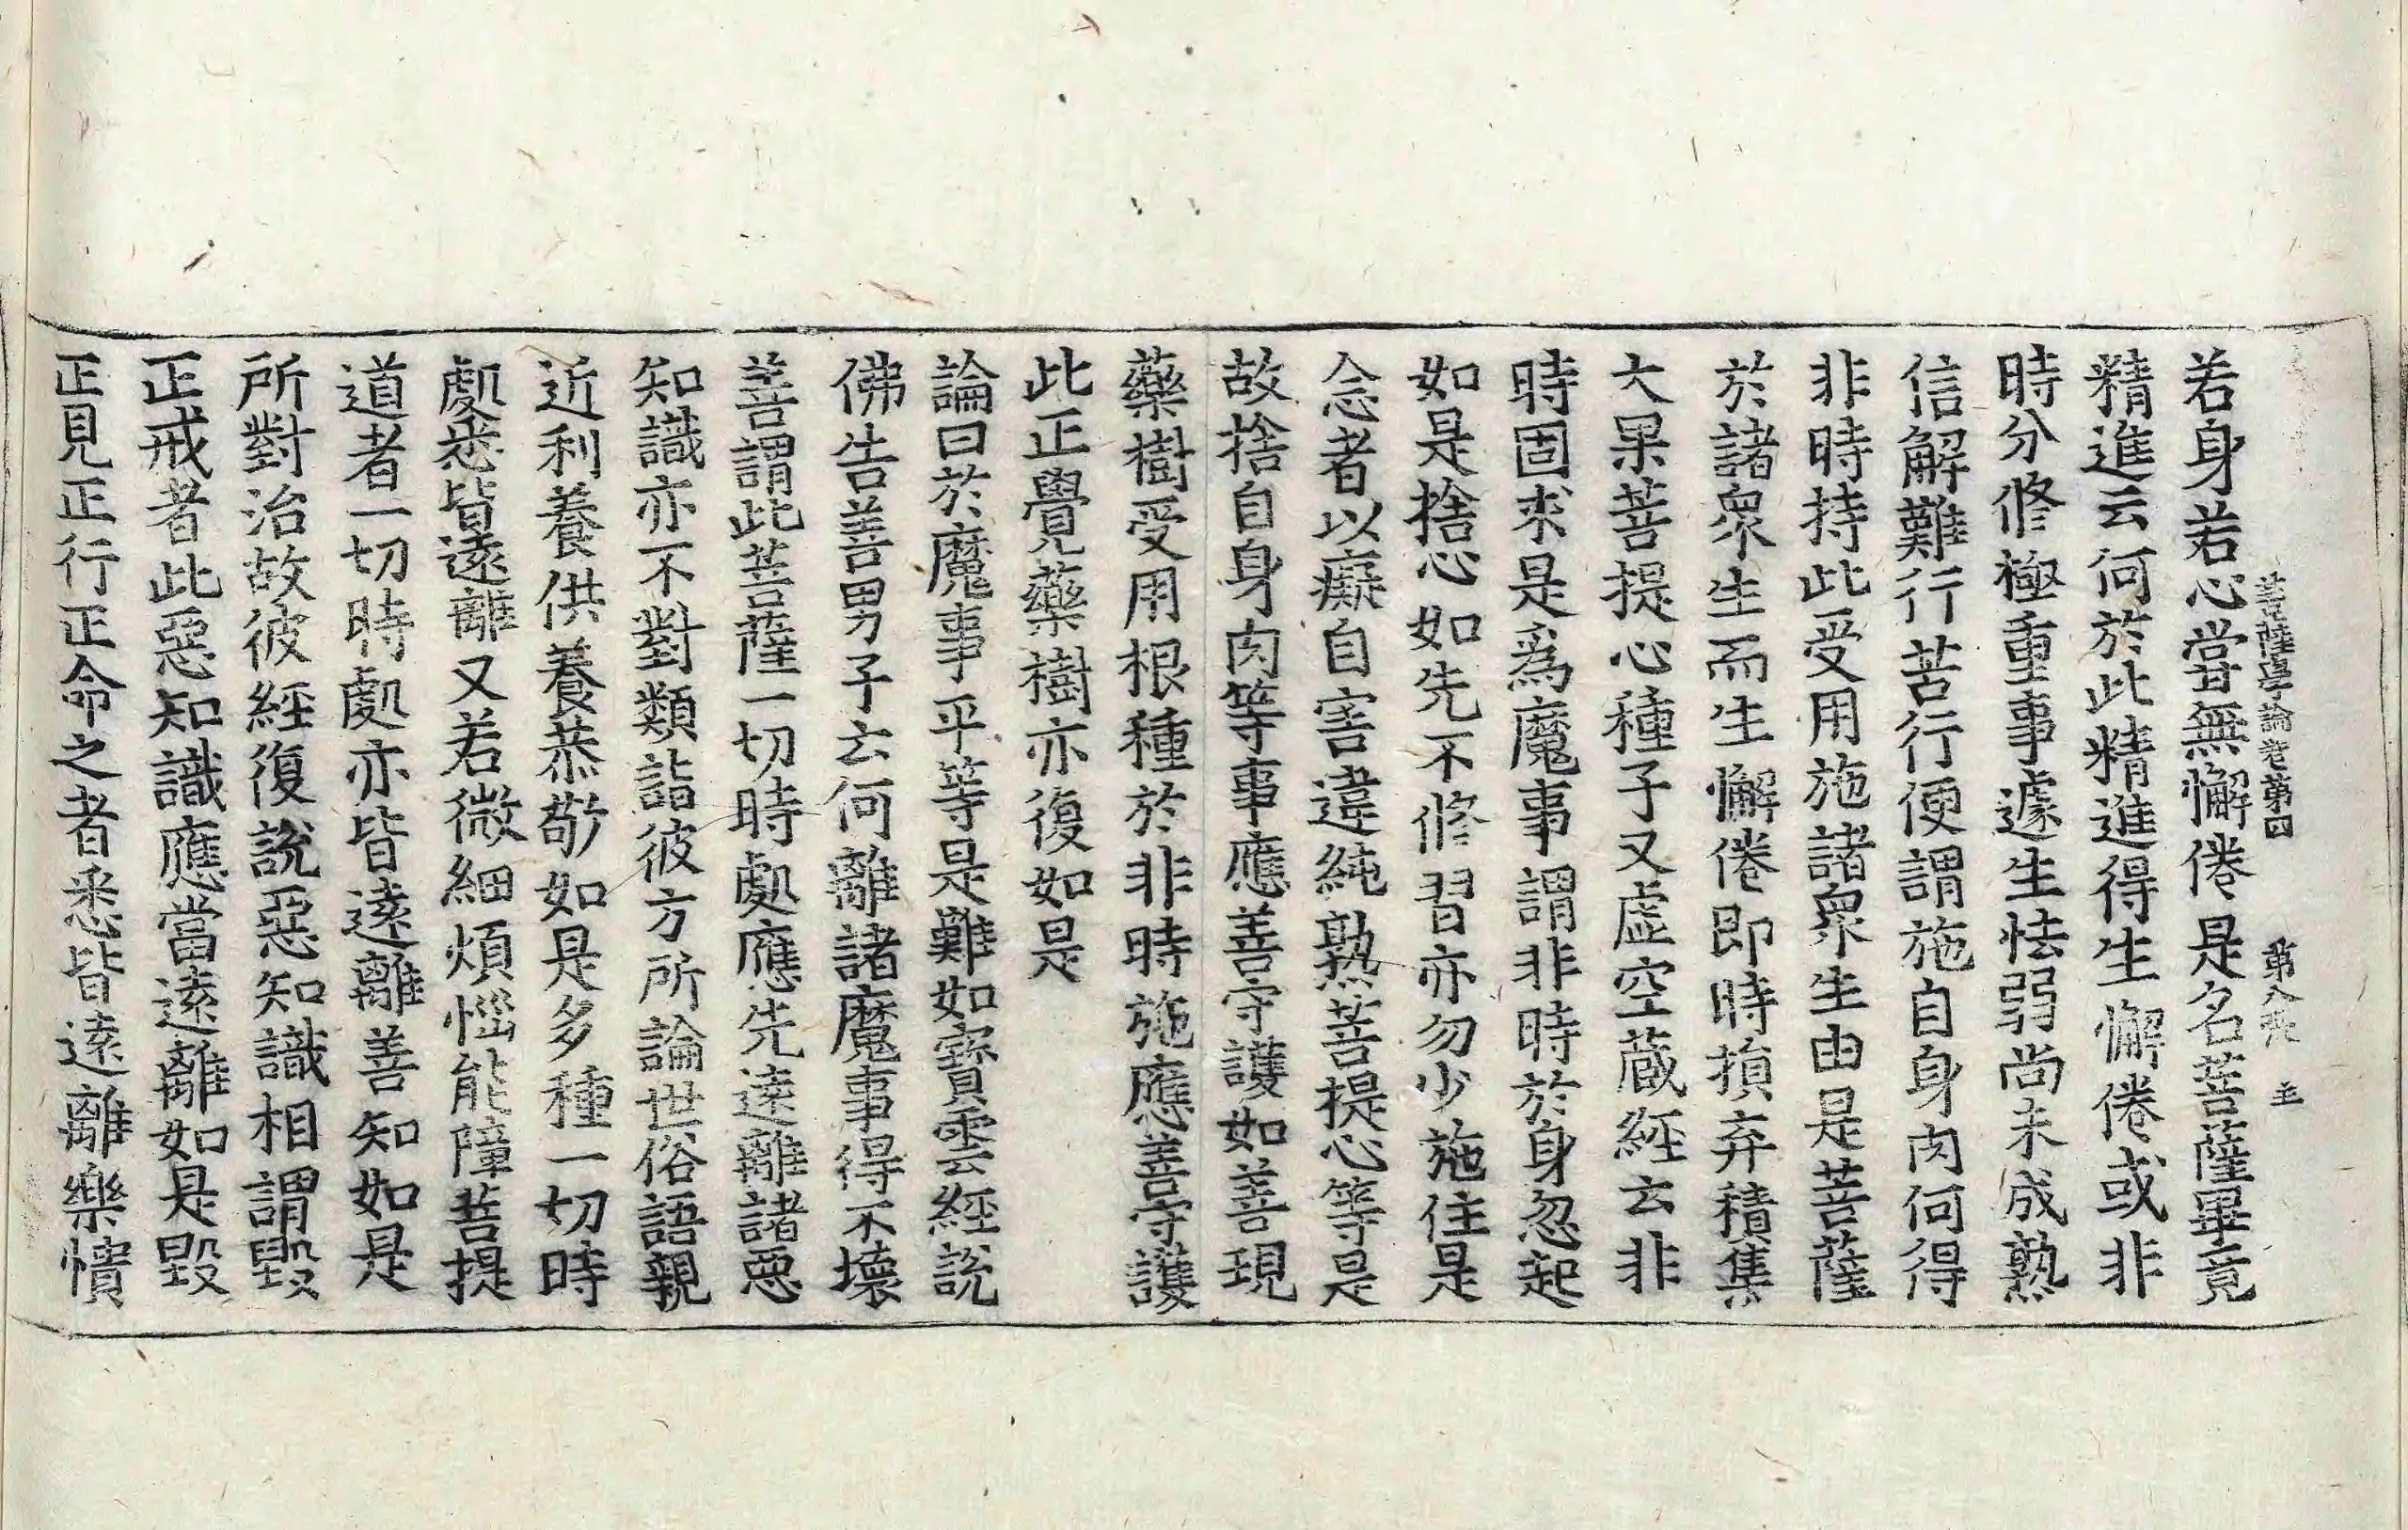 菩薩學論卷第四　第八張　主
若身若心當無懈倦是名菩薩畢竟
精進云何於此精進得生懈倦或非
時分修極重事遽生怯弱尚未成熟
信解難行苦行便謂施自身肉何得
非時持此受用施諸衆生由是菩薩
於諸衆生而生懈倦即時損弃積集
大果菩提心種子又虛空藏經云非
時固求是爲魔事謂非時於身忽起
如是捨心如先不修習亦勿少施住是
念者以癡自害違純熟菩提心等是
故捨自身肉等事應善守護如善現
藥樹受用根種於非時施應善守護
此正覺藥樹亦復如是
論曰於魔事平等是難如寶雲經說
佛告善男子云何離諸魔事得不壞
菩謂此菩薩一切時處應先遠離諸惡
知識亦不對類詣彼方所論世俗語親
近利養供養恭敬如是多種一切時
處悉皆遠離又若微細煩惱能障菩提
道者一切時處亦皆遠離善知如是
所對治故彼經復說惡知識相謂毀
正戒者此惡知識應當遠離如是毀
正見正行正命之者悉皆遠離樂憒